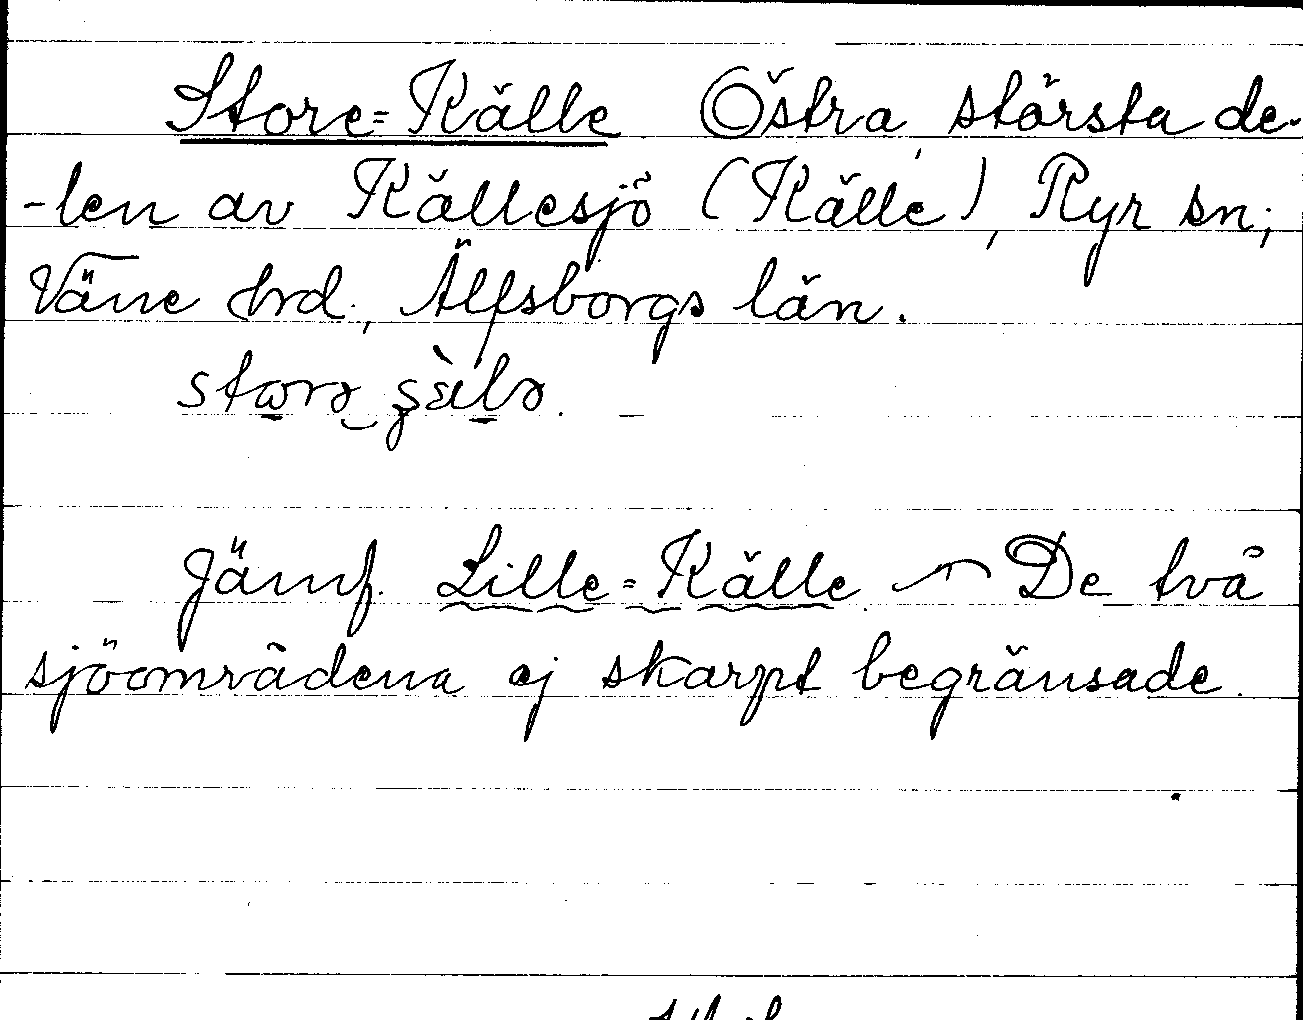 Store-Källe Östra, största de-
-len av Källesjö (Källe), Ryr sn;
Väne hrd., Älfsborgs län.
Jämf. Lille-Källe – De två
sjöområdena ej skarpt begränsade.